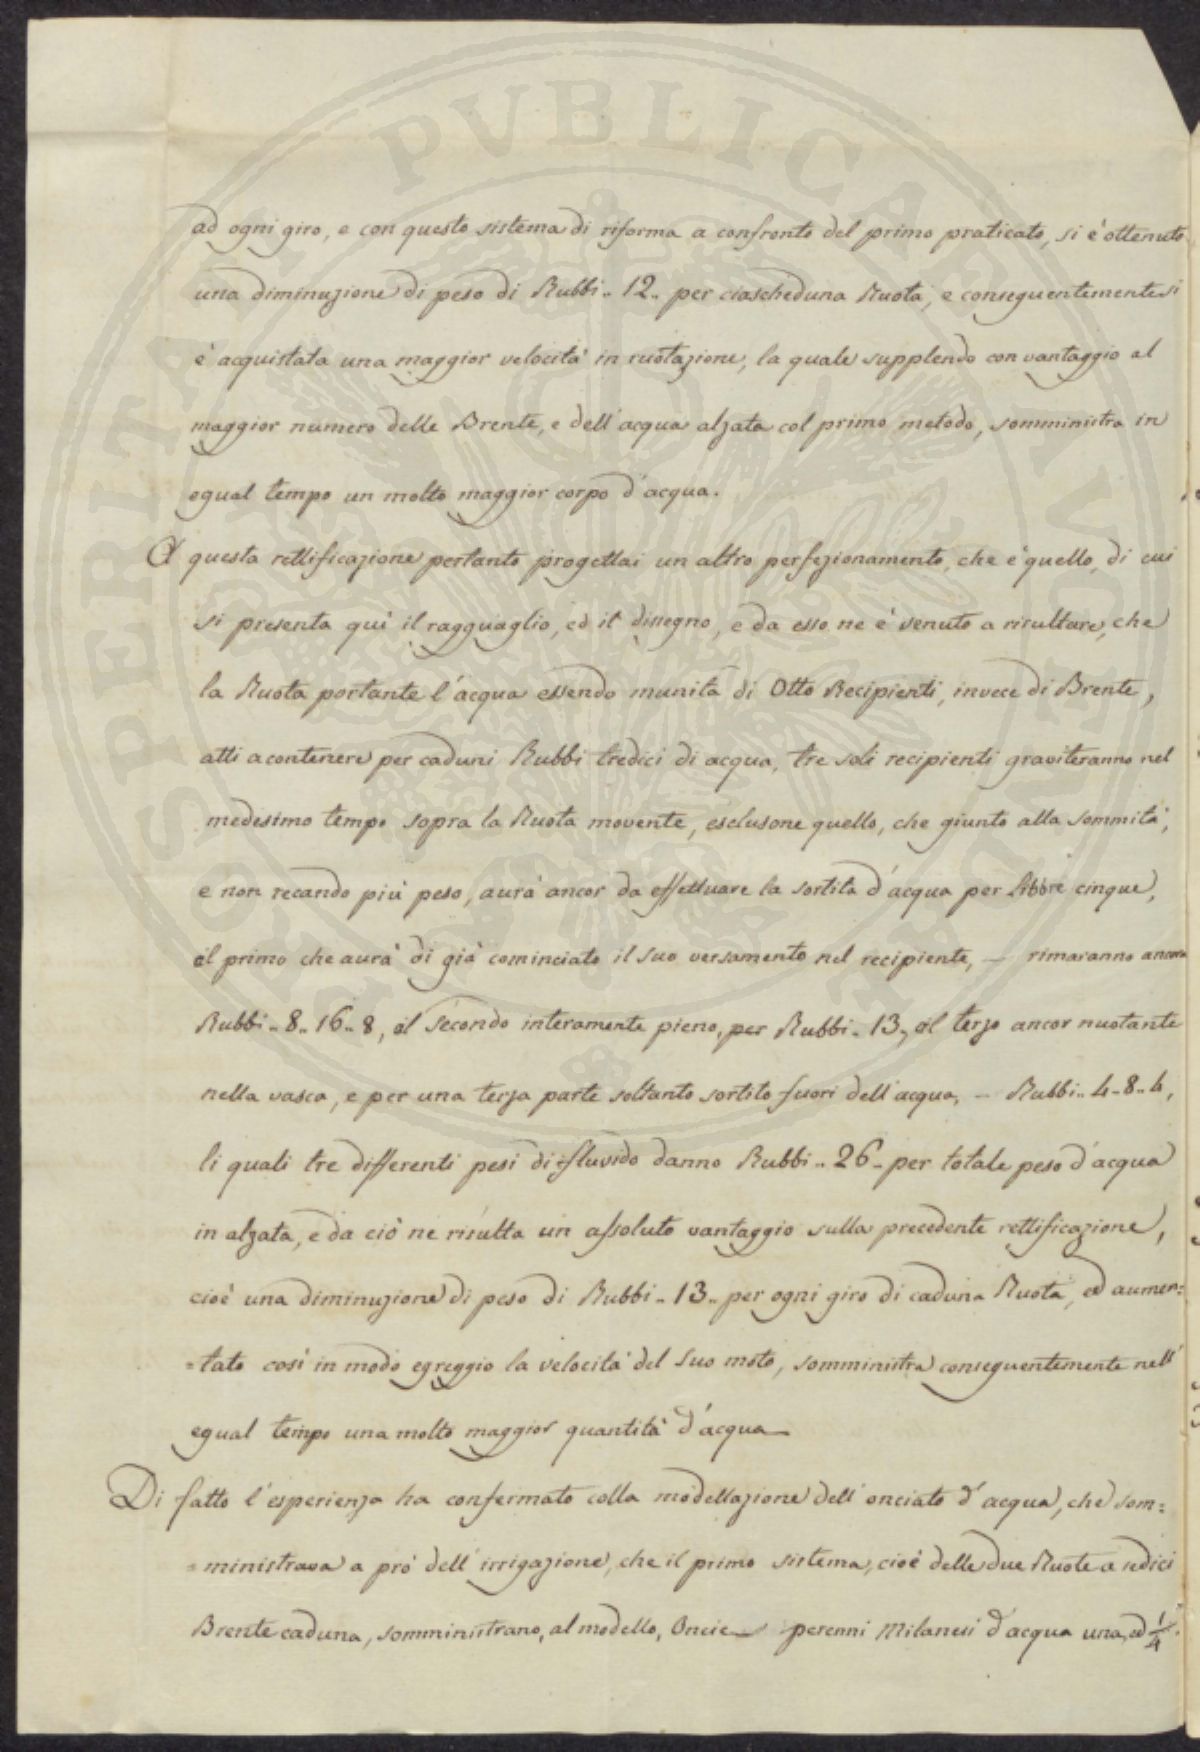 ad ogni giro, e con questo sistema di riforma a confronto del primo praticato, si è ottenuto
una diminuzione di peso di Rubbi.. 12.. per ciascheduna Ruota, e conseguentemente si
è acquistata una maggior velocità in ruotazione, la quale supplendo con vantaggio al
maggior numero delle Brente, e dell'acqua alzata col primo metodo, somministra in
egual tempo un molto maggior corpo d'acqua.
A questa rettificazione pertanto progettai un altro perfezionamento, che è quello, di cui
si presenta quì il ragguaglio, ed il disegno, e da esso ne è venuto a risultare, che
la Ruota portante l'acqua essendo munita di Otto Recipienti, invece di Brente,
atti a contenere per caduni Rubbi tredici di acqua, tre soli recipienti graviteranno nel
medesimo tempo sopra la Ruota movente, esclusone quello, che giunto alla sommità,
e non recando più peso, aurà ancor da effettuare la sortita d'acqua per Libbre cinque,
il primo che aurà di già cominciato il suo versamento nel recipiente, — rimaranno ancora
Rubbi.. 8.. 16.. 8, il secondo interamente pieno, per Rubbi.. 13, il terzo ancor nuotante
nella vasca, e per una terza parte soltanto sortito fuori dell'acqua, — Rubbi.. 4.. 8.. 4,
li quali tre differenti pesi di fluvido danno Rubbi.. 26.. per totale peso d'acqua
in alzata, e da ciò ne risulta un assoluto vantaggio sulla precedente rettificazione,
cioè una diminuzione di peso di Rubbi.. 13.. per ogni giro di caduna Ruota, ed aumen=
=tato così in modo egreggio la velocità del suo moto, somministra conseguentemente nell'
egual tempo una molto maggior quantità d'acqua —
Di fatto l'esperienza ha confermato colla modellazione dell'onciato d'acqua, che som=
=ministrava a prò dell'irrigazione, che il primo sistema, cioè delle due Ruote a sedici
Brente caduna, somministrano, al modello, Oncie — perenni Milanesi d'acqua una, ed 1/4.
PROSPERITATI PUBLICAE